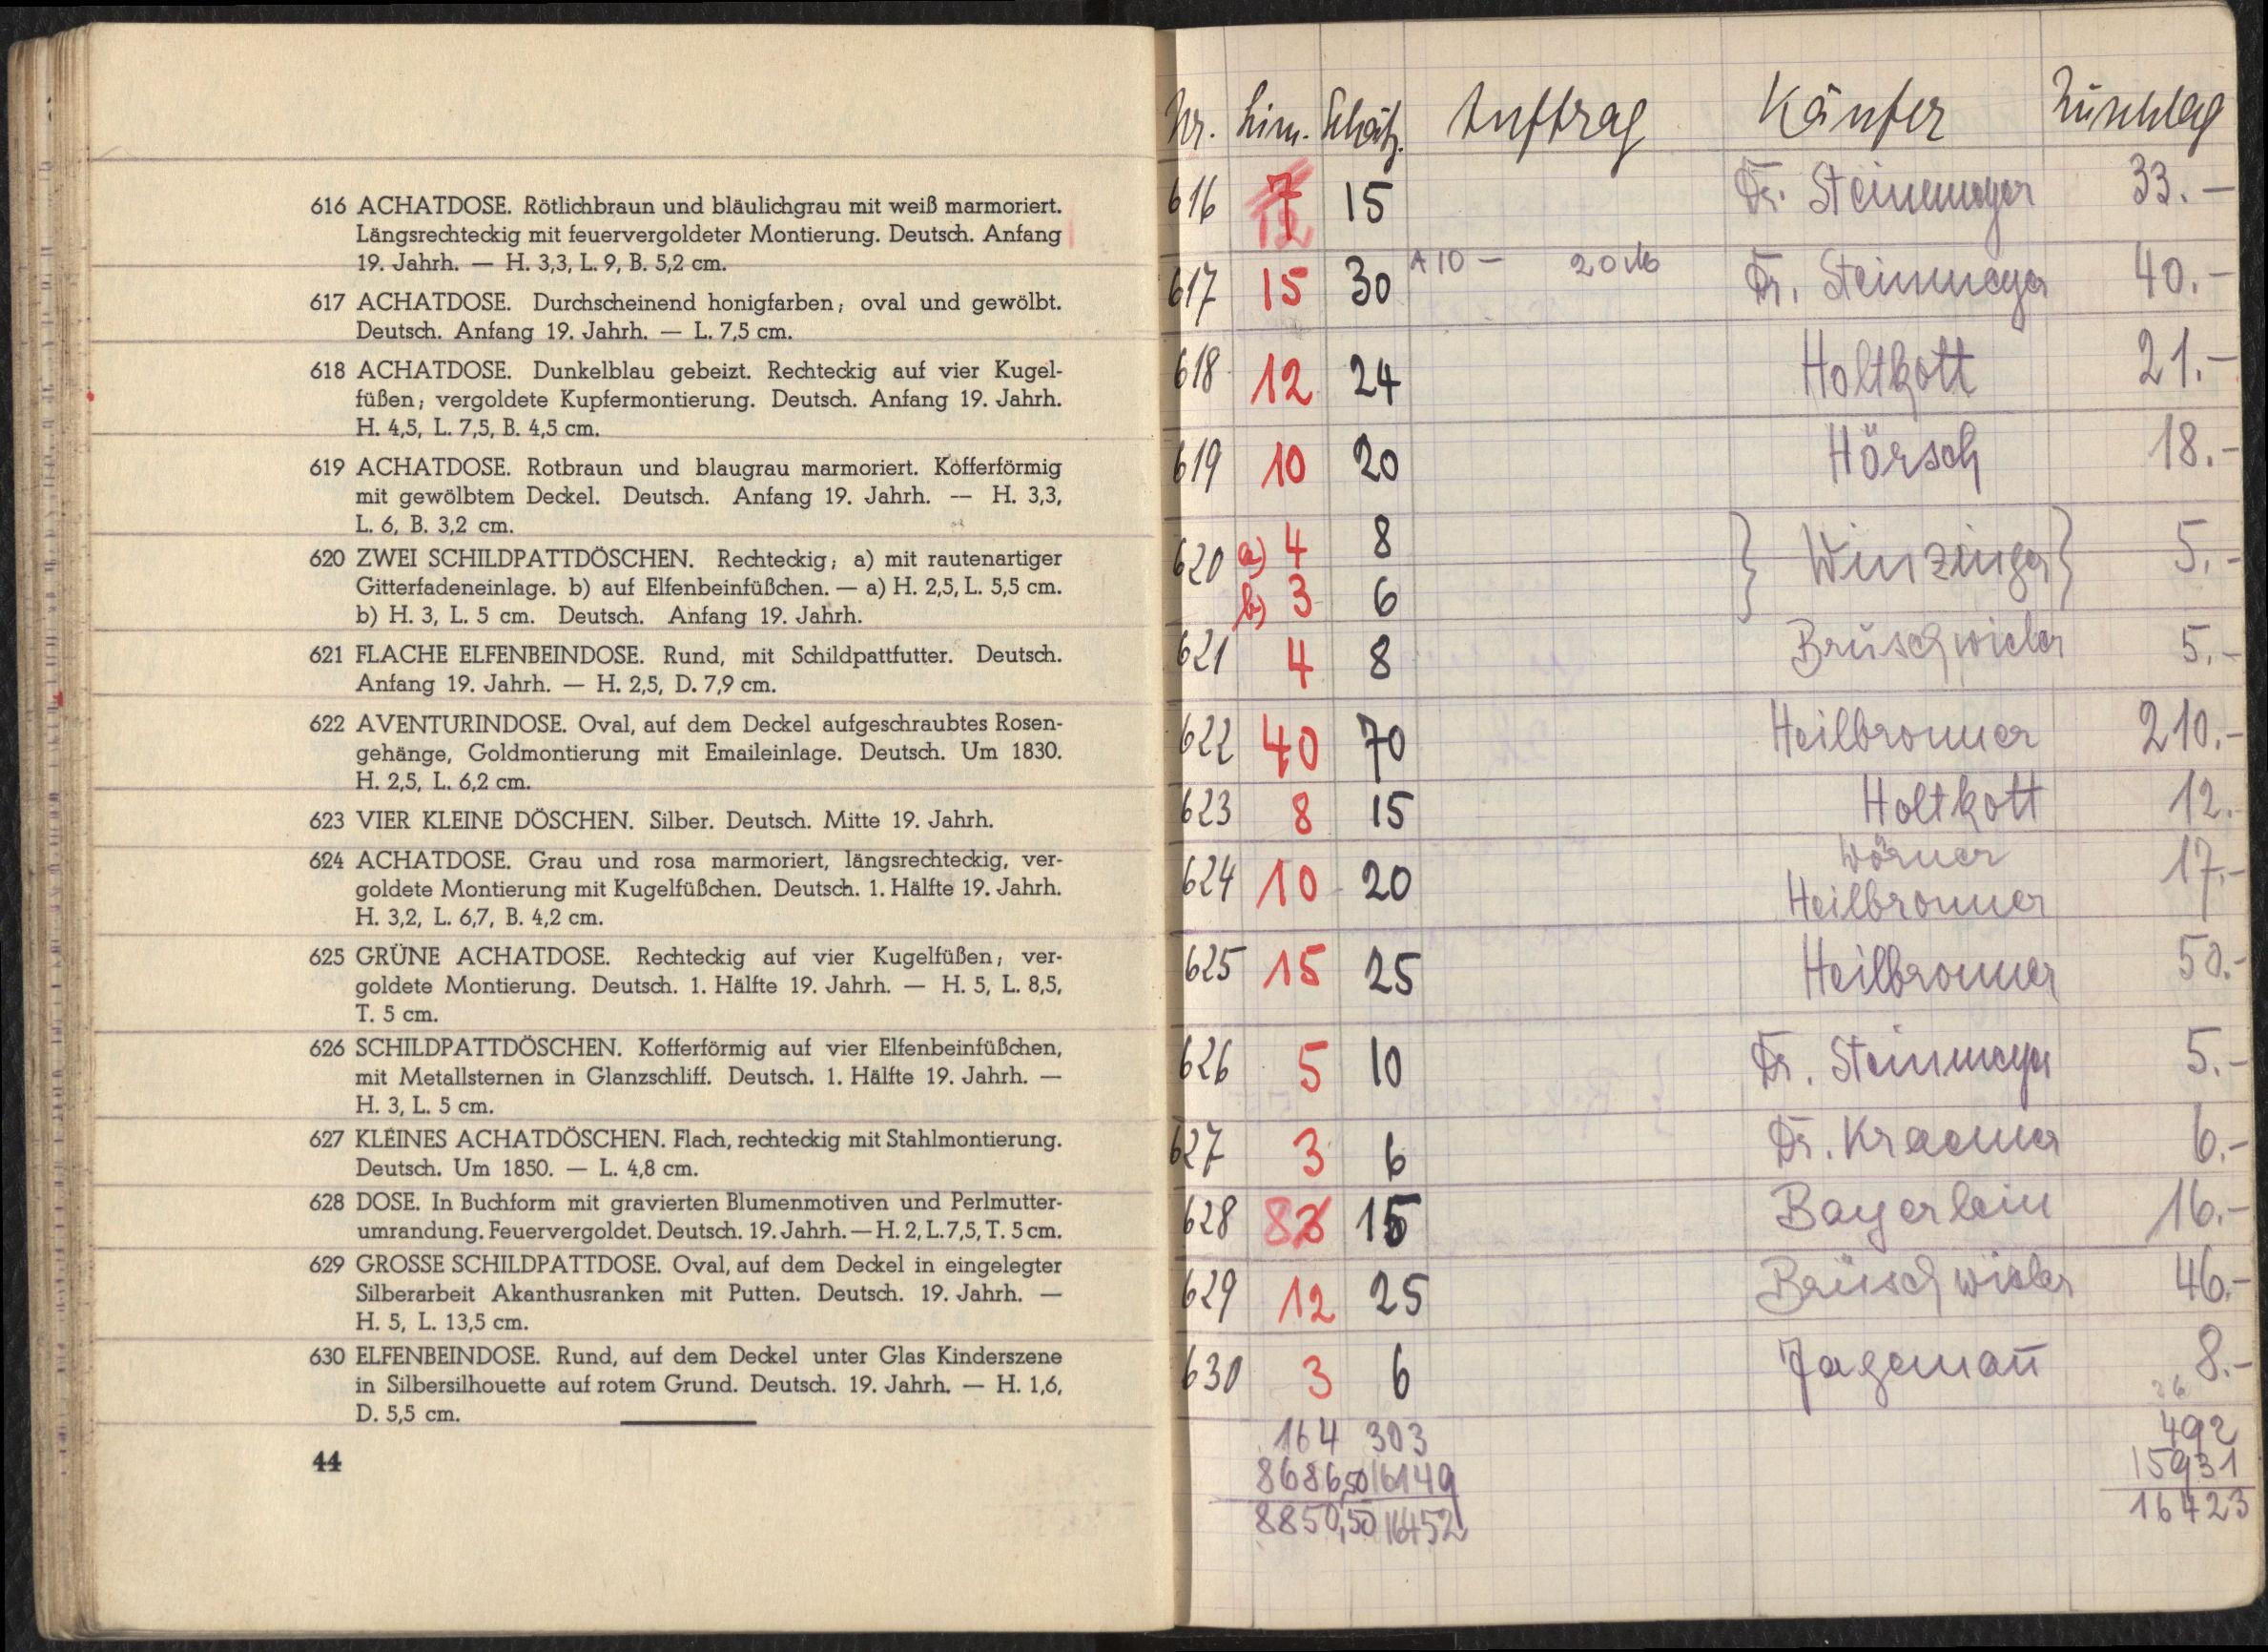 616 ACHATDOSE. Rötlichbraun und bläulichgrau mit weiß marmoriert.
Längsrechteckig mit feuervergoldeter Montierung. Deutsch. Anfang
19. Jahrh. — H. 3,3, L. 9, B. 5,2 cm.
617 ACHATDOSE. Durchscheinend honigfarben; oval und gewölbt.
Deutsch. Anfang 19. Jahrh. — L. 7,5 cm.
618 ACHATDOSE. Dunkelblau gebeizt. Rechteckig auf vier Kugel-
füßen; vergoldete Kupfermontierung. Deutsch. Anfang 19. Jahrh.
H. 4,5, L. 7,5, B. 4,5 cm.
619 ACHATDOSE. Rotbraun und blaugrau marmoriert. Kofferförmig
mit gewölbtem Deckel. Deutsch. Anfang 19. Jahrh. — H. 3,3,
L. 6, B. 3,2 cm.
620 ZWEI SCHILDPATTDÖSCHEN. Rechteckig; a) mit rautenartiger
Gitterfadeneinlage. b) auf Elfenbeinfüßchen. — a) H. 2,5, L. 5,5 cm.
b) H. 3, L. 5 cm. Deutsch. Anfang 19. Jahrh.
621 FLACHE ELFENBEINDOSE. Rund, mit Schildpattfutter. Deutsch.
Anfang 19. Jahrh. — H. 2,5, D. 7,9 cm.
622 AVENTURINDOSE. Oval, auf dem Deckel aufgeschraubtes Rosen-
gehänge, Goldmontierung mit Emaileinlage. Deutsch. Um 1830.
H. 2,5, L. 6,2 cm.
623 VIER KLEINE DÖSCHEN. Silber. Deutsch. Mitte 19. Jahrh.
624 ACHATDOSE. Grau und rosa marmoriert, längsrechteckig, ver-
goldete Montierung mit Kugelfüßchen. Deutsch. 1. Hälfte 19. Jahrh.
H. 3,2, L. 6,7, B. 4,2 cm.
625 GRÜNE ACHATDOSE. Rechteckig auf vier Kugelfüßen; ver-
goldete Montierung. Deutsch. 1. Hälfte 19. Jahrh. — H. 5, L. 8,5,
T. 5 cm.
626 SCHILDPATTDÖSCHEN. Kofferförmig auf vier Elfenbeinfüßchen,
mit Metallsternen in Glanzschliff. Deutsch. 1. Hälfte 19. Jahrh. —
H. 3, L. 5 cm.
627 KLEINES ACHATDÖSCHEN. Flach, rechteckig mit Stahlmontierung.
Deutsch. Um 1850. — L. 4,8 cm.
628 DOSE. In Buchform mit gravierten Blumenmotiven und Perlmutter-
umrandung. Feuervergoldet. Deutsch. 19. Jahrh. — H. 2, L. 7,5, T. 5 cm.
629 GROSSE SCHILDPATTDOSE. Oval, auf dem Deckel in eingelegter
Silberarbeit Akanthusranken mit Putten. Deutsch. 19. Jahrh. —
H. 5, L. 13,5 cm.
630 ELFENBEINDOSE. Rund, auf dem Deckel unter Glas Kinderszene
in Silbersilhouette auf rotem Grund. Deutsch. 19. Jahrh. — H. 1,6,
D. 5,5 cm.
44
Nr. Lim. Schätz. Auftrag Käufer Zuschlag
616 7 12 15 Dr. Steinmeyer 33.—
617 15 30 A 10 — 20 Dr. Steinmeyer 40.—
618 12 24 Holtkott 21.—
619 10 20 Hörsch 18.—
620 a) 4 8 } Winzinger } 5.—
b) 3 6
621 4 8 Brüschwiler 5.—
622 40 70 Heilbronner 210.—
623 8 15 Holtkott 12.
624 10 20 Wörner 17.—
Heilbronner
625 15 25 Heilbronner 50.—
626 5 10 Dr. Steinmeyer 5.—
627 3 6 Dr. Kraemer 6.—
628 8 3 15 Bayerlein 16.—
629 12 25 Brüschwiler 46.—
630 3 6 Jagemañ 8.—
164 303 492
8686,50 16149 15931
8850,50 16452 16423